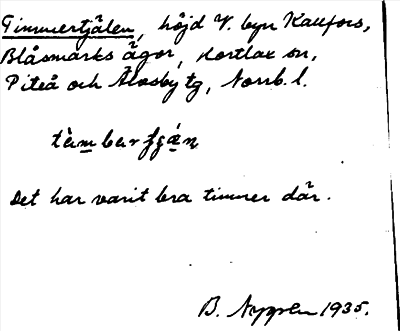 Timmertjälen, höjd V. byn Kallfors,
Blåsmarks ägor, Hortlax sn,
Piteå och Älvsby tg, Norrb. l.
Det har varit bra timmer där.
B. Nyppen 1935.